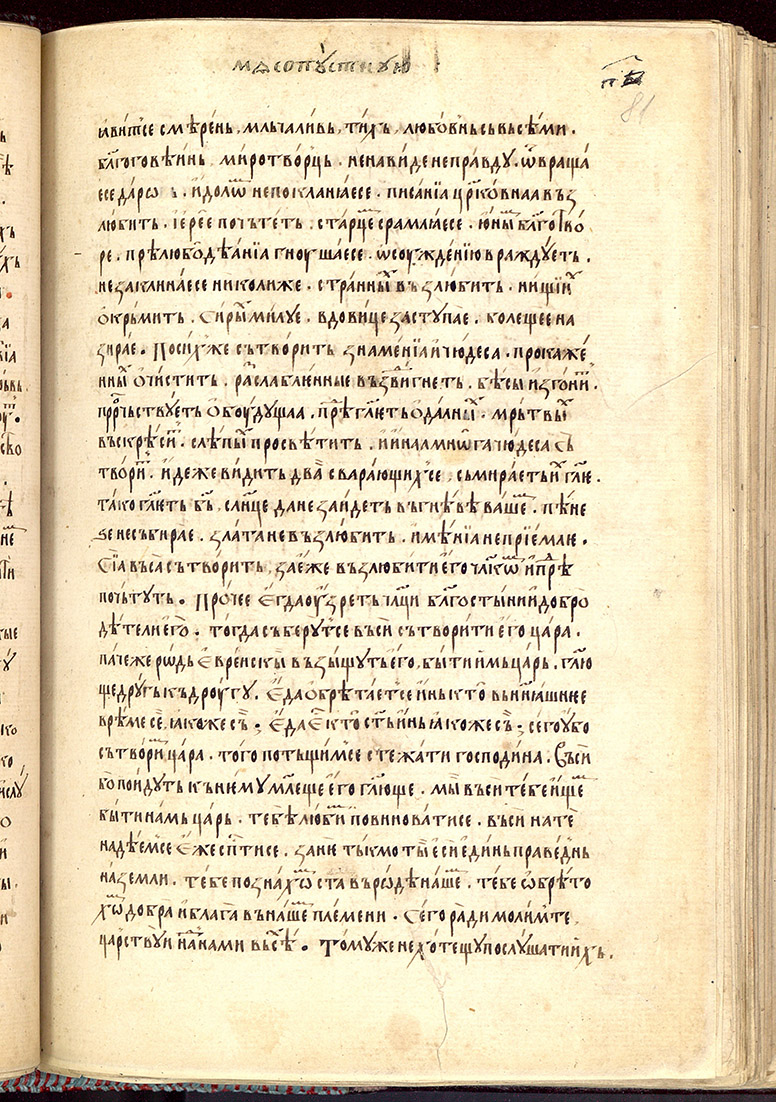 мѧсопꙋстнꙋю
п҃в
81
ꙗвитсе смѣрень, мльчаливь, тихъ, любовнь сь вьсѣми.
бл҃гоговѣинь, миротворць. ненавиде неправдꙋ. ѿвраща
есе дарѡ . идолѡ не покланꙗесе. писанїа цр҃ковнаа въз
любить. їерее почьтеть. старце срамлꙗесе. юны бл҃готво
ре. прѣлюбодѣанїа гноушаесе. ѡсоуждению враждуеть.
не заклинаесе николиже. странны възлюбить. нищїи
окрьмить. сиры милуе. вдовице застꙋпае. колещее на
зирае. По сих же сътворить знаменїа и чюдеса. прокаже
нны ѡчистить. раслабленные въздвигнеть. бѣсы изгони.
прⷪ҇рчьствуеть обоудꙋщаа. прѣгл҃еть ѡдалны. мрьтвы
въскрѣси. слѣпы просвѣтить. и ина мнѡга чюдеса съ
твори. идеже видить два сварающихсе, сьмираеть и гл҃ю.
тако гл҃еть бь, сл҃нце да не заидеть въ гнѣвѣ ваше. пѣне
зе не събирае. злата не възлюбить. имѣнїа не прїемлю.
Сїа въса сътворить, за еже възлюбити его чл҃кѡ и прѣ
почьтуть. Прочее егда оузреть чл҃ци бл҃гостыни и добро
дѣтели его. тогда съберутсе въси сътворити его цара.
паче же рѡдь еврейскы възыщуть его, быти имь царь. гл҃ю
ще другь къ дроугꙋ. Еда обрѣтаетсе инь кто въ нинꙗшнее
врѣме се. ꙗкоже сь; Еда е кто сть инь ꙗкоже сь; сего оубо
сътвори цара. того потьщимсе стежати господина. Въси
бо поидуть къ немꙋ млеще его гл҃юще. мы въси тебе ище
быти намь царь. тебѣ люби повиноватисе. въси на те
надѣемсе еже сп҃тисе. зане тькмо ты еси единь праведнь
на земли. тебе познахѡ ста въ рѡдѣ наше. тебе ѡбрѣто
хѡ добра и блага въ наше племени. Сего ради молимте
царствуи на нами въсѣ. Томꙋ же не хотещꙋ послꙋшати ихь.